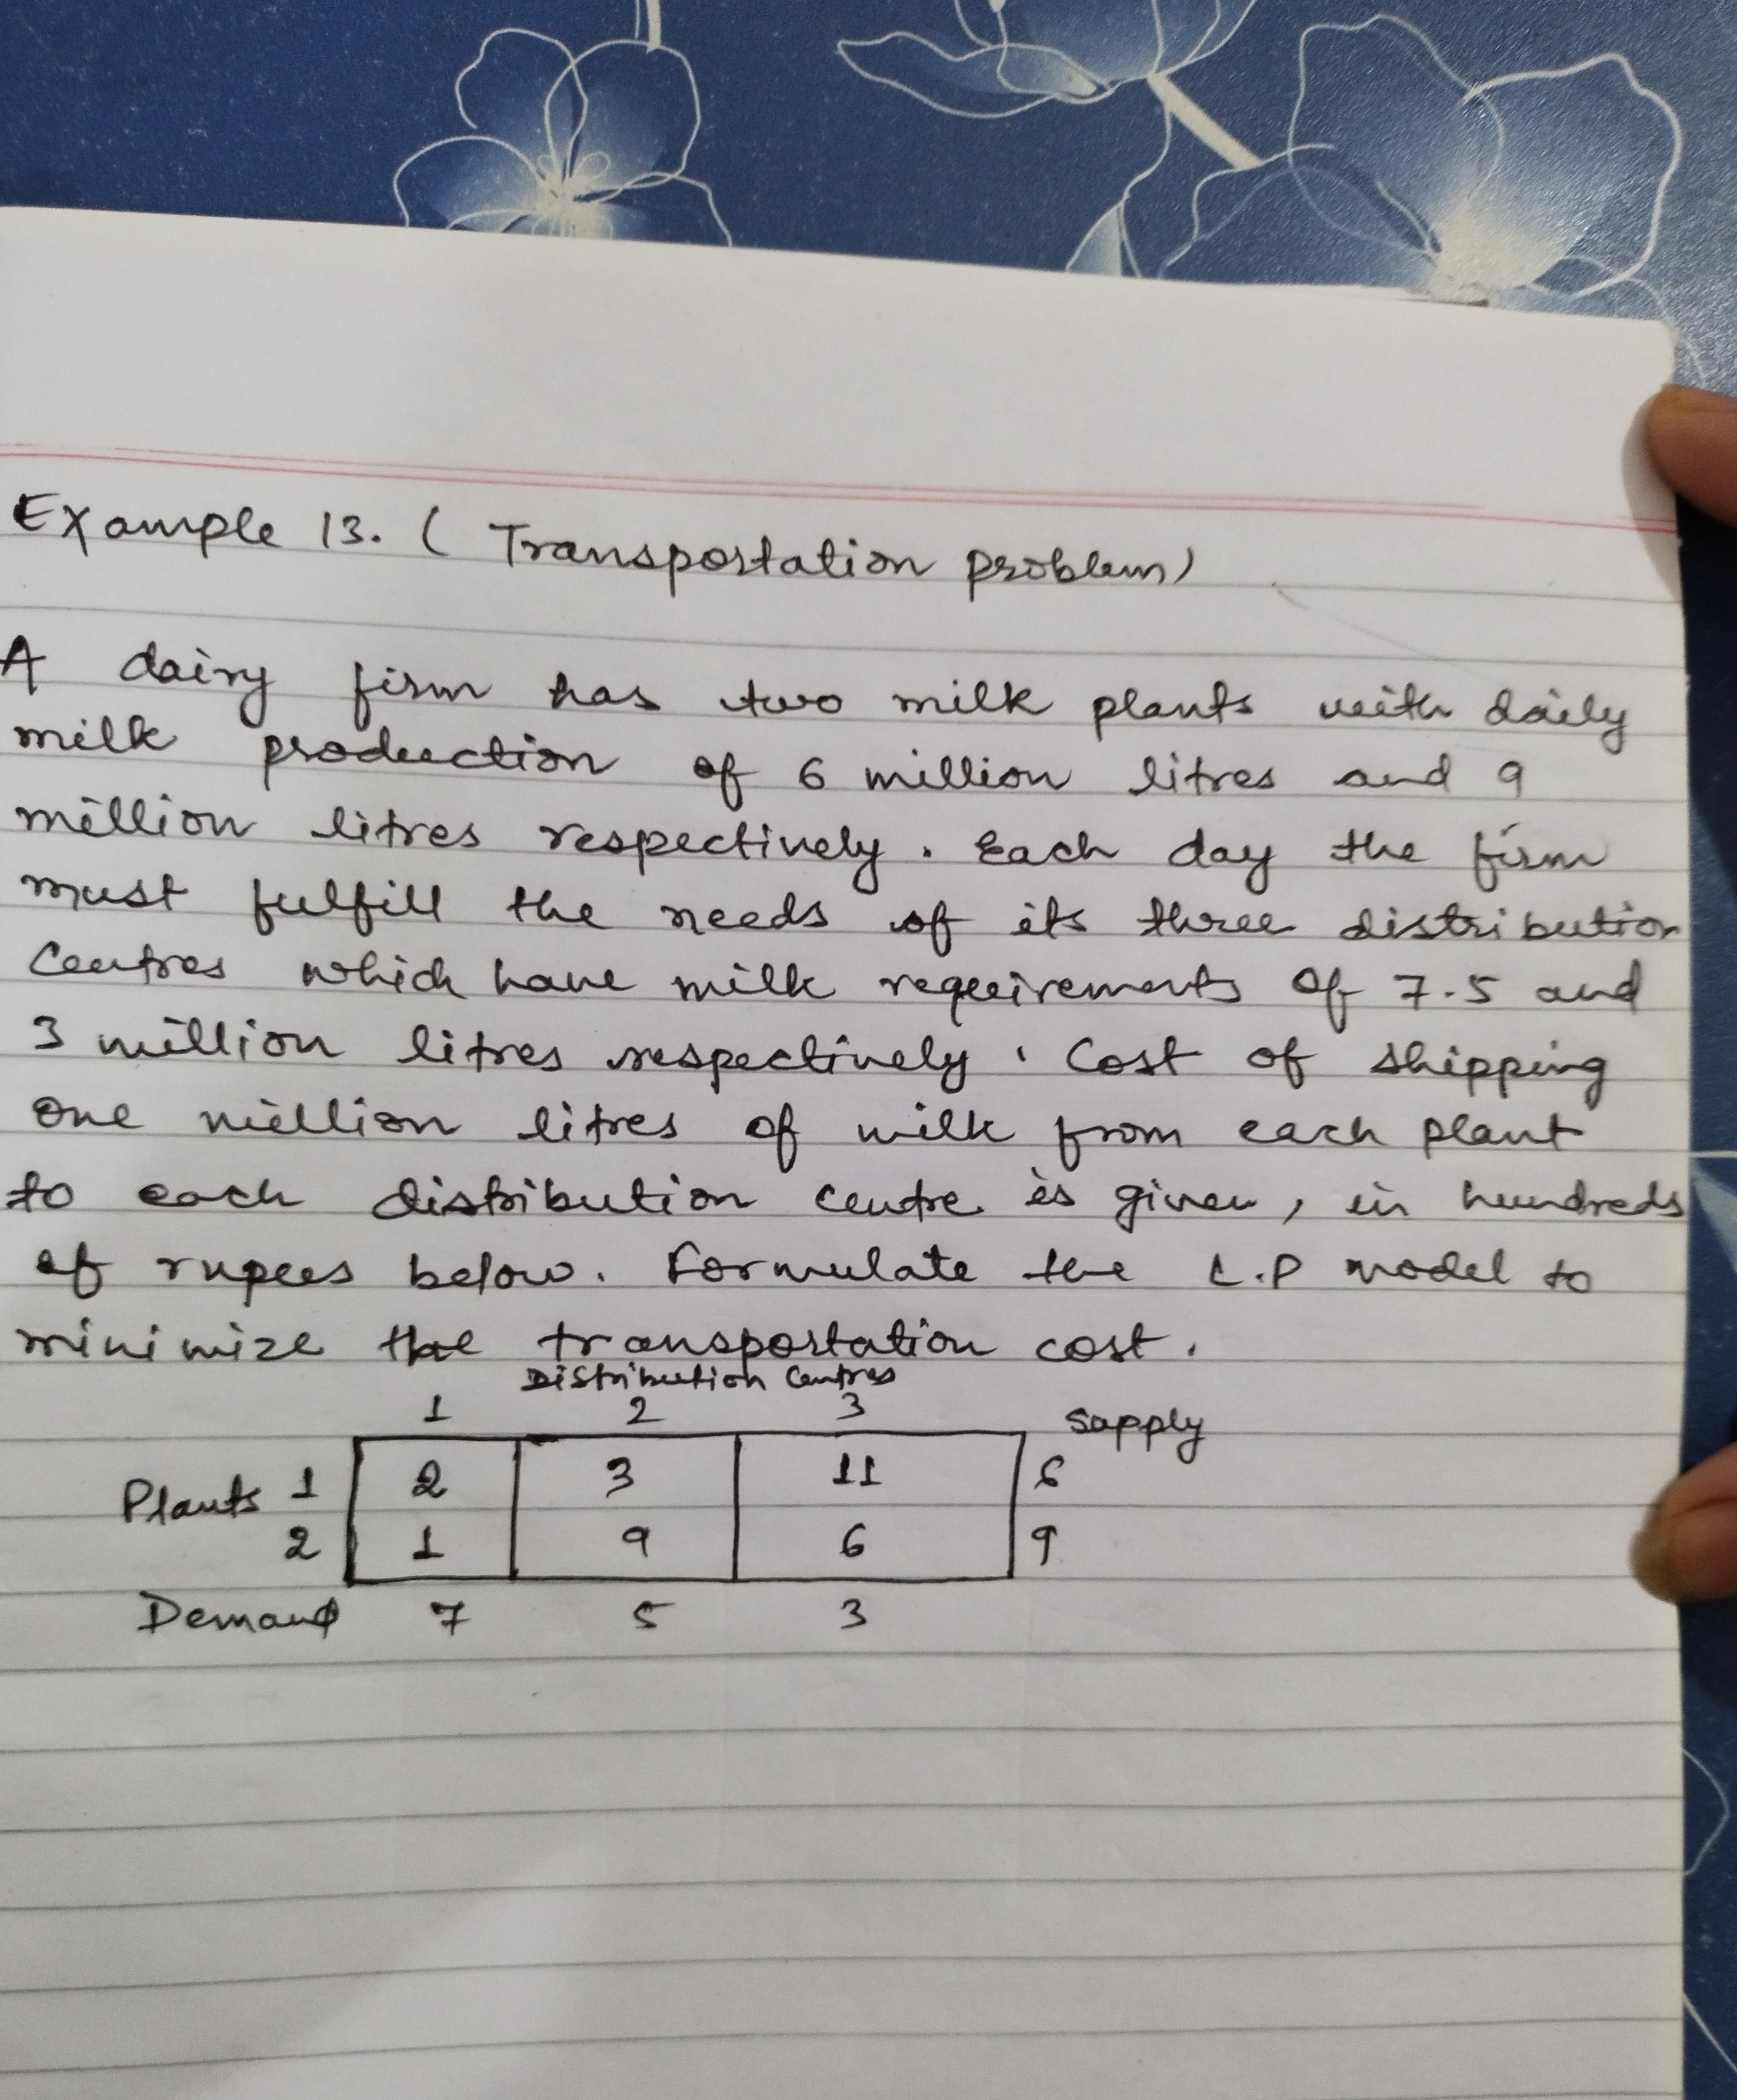 Example 13. ( Transportation problem)
A dairy firm has two milk plants with daily
milk production of 6 million litres and 9
million litres respectively. Each day the firm
must fulfill the needs of its three distribution
Centres which have milk requirements of 7.5 and
3 million litres respectively. Cost of shipping
one million litres of milk from each plant
to each distribution centre is given, in hundreds
of rupees below. Formulate the L.P model to
minimize the transportation cost.
Distribution Centres
1 2 3 Supply
Plants 1 2 3 11 6
2 1 9 6 9
Demand 7 5 3